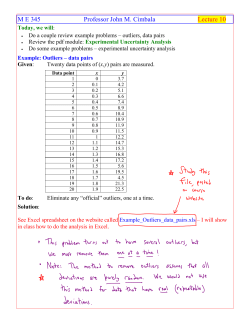 M E 345 Professor John M. Cimbala Lecture 10
Today, we will:
• Do a couple review problems – outliers, data pairs
• Review the pdf module: Experimental Uncertainty Analysis
• Do some example problems – experimental uncertainty analysis
Example: Outliers – data pairs
Given: Twenty data points of (x,y) pairs are measured.
Data point x y
1 0 3.7
2 0.1 4.2
3 0.2 5.1
4 0.3 6.6
5 0.4 7.4
6 0.5 8.9
7 0.6 10.4
8 0.7 10.9
9 0.8 11.9
10 0.9 11.5
11 1 12.2
12 1.1 14.7
13 1.2 15.3
14 1.3 16.8
15 1.4 17.2
16 1.5 5.6
17 1.6 19.5
18 1.7 4.5
19 1.8 21.3
20 1.9 22.5
* Study this
file, posted
on course
website
To do: Eliminate any “official” outliers, one at a time.
Solution:
See Excel spreadsheet on the website called Example_Outliers_data_pairs.xls – I will show
in class how to do the analysis in Excel.
• This problem turns out to have several outliers, but
we must remove them one at a time!
* • Note: The method to remove outliers assumes that all
deviations are purely random. We would not use
this method for data that have real (repeatable)
deviations.